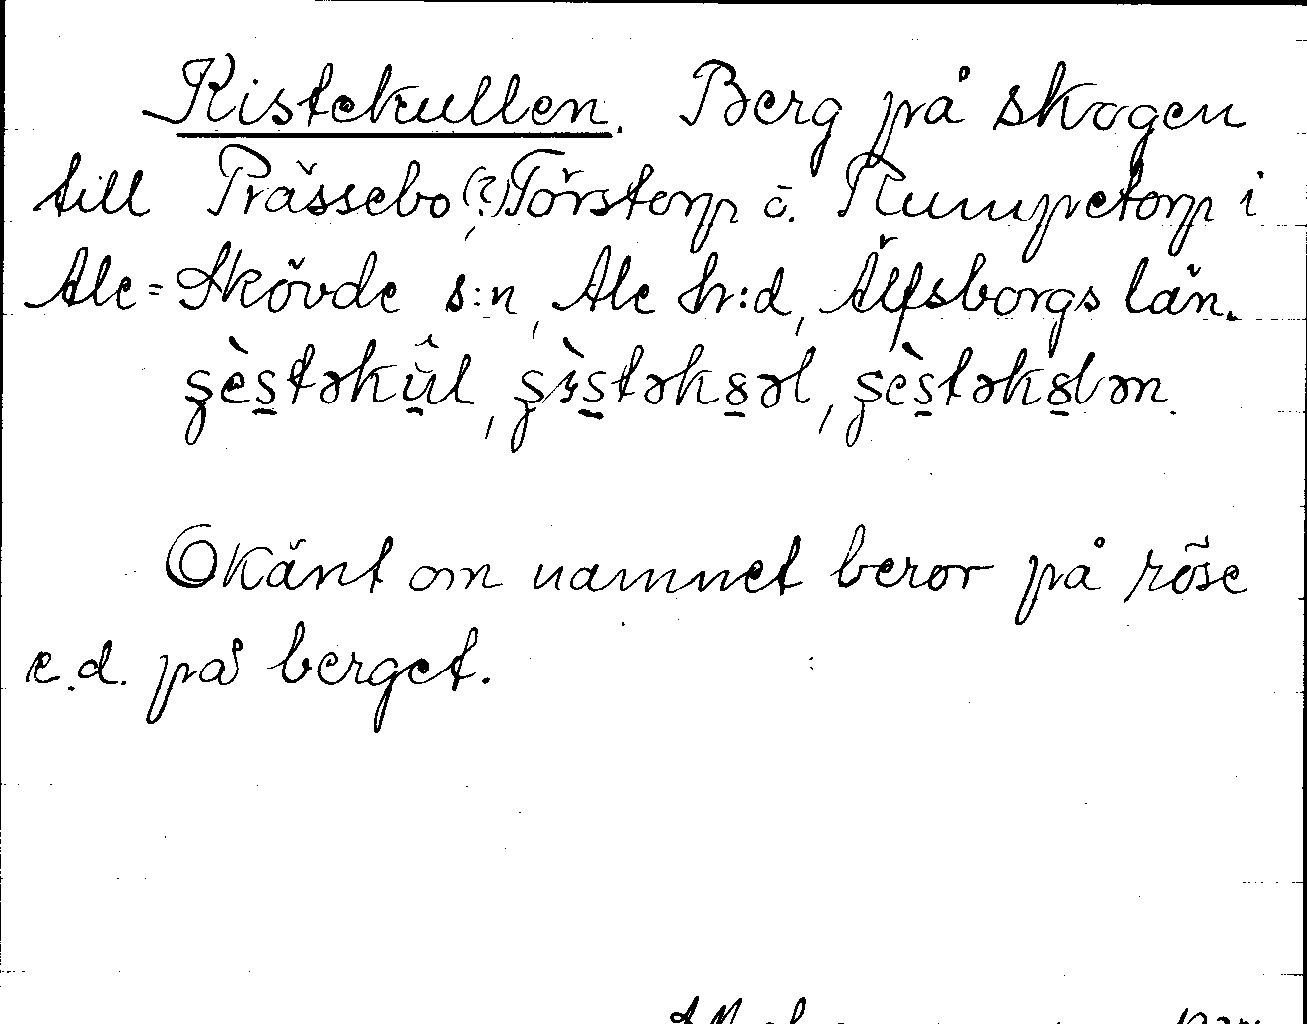 Kistekullen. Berg på skogen
till Prässebo (?), Törstorp o. Rumpetorp i
Ale-Skövde s:n, Ale hr:d, Älfsborgs län.
Okänt om namnet beror på röse
e.d. på berget.